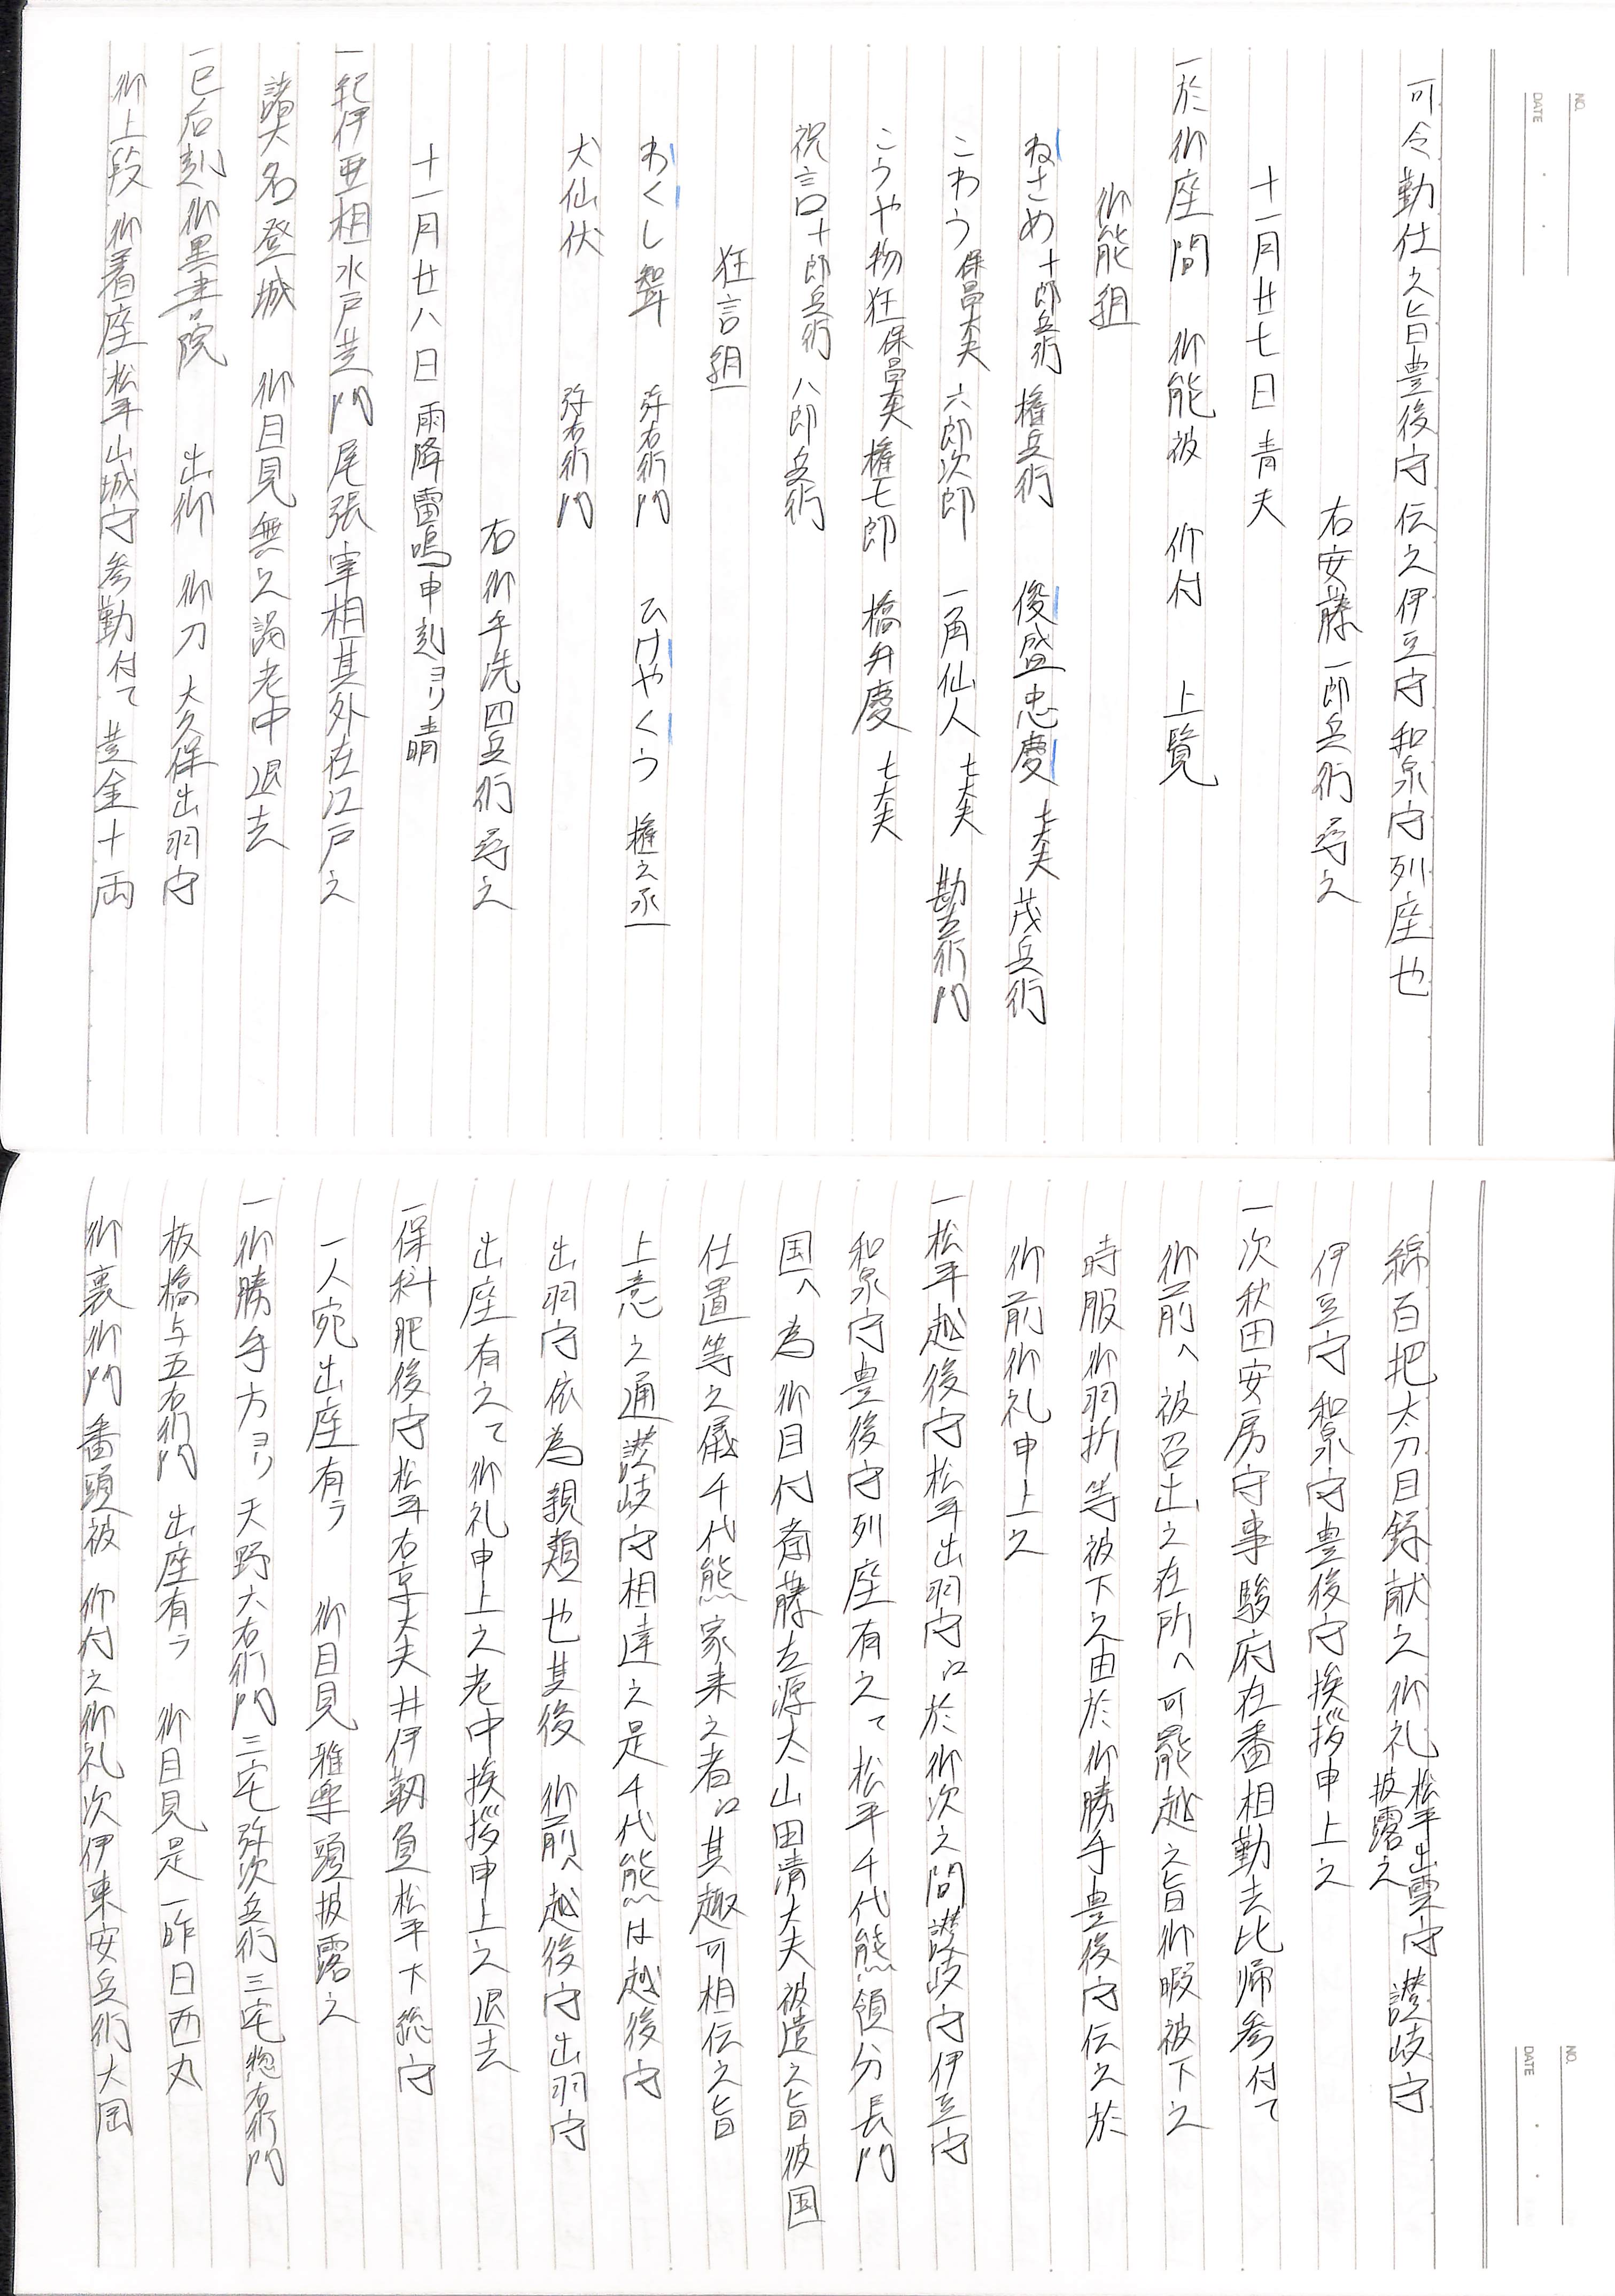 NO.
DATE
可令勤仕之旨豊後守伝之伊豆守和泉守列座也
右安藤一郎兵衛尋之
十一月廿七日 青天
一於御座間 御能被 仰付 上覧
御能組
ねさめ 十郎兵衛 権兵衛 俊盛忠慶 七大夫 茂兵衛
こわう 保昌大夫 六郎次郎 一角仙人 七大夫 勘左衛門
こうや物狂 保昌大夫 権七郎 橋弁慶 七大夫
祝言 十郎兵衛 八郎兵衛
狂言組
わくし聟 弥右衛門 ひけやくう 権之丞
犬仙伏 弥右衛門
右御手洗四兵衛尋之
十一月廿八日 雨降雷鳴申刻ヨリ晴
一紀伊亜相水戸黄門尾張宰相其外在江戸之
諸大名登城 御目見無之謁老中退去
一巳后刻御黒書院 出御 御刀 大久保出羽守
御上段 御着座松平山城守参勤付て 黄金十両
NO.
DATE
綿百把太刀目録献之御礼 松平出雲守披露之 讃岐守
伊豆守和泉守豊後守挨拶申上之
一次秋田安房守事駿府在番相勤去比帰参付て
御前へ被召出之在所へ可罷越之旨御暇被下之
時服御羽折等被下之由於御勝手豊後守伝之於
御前御礼申上之
一松平越後守松平出羽守江於御次之間讃岐守伊豆守
和泉守豊後守列座有之て松平千代熊領分長門
国へ為御目付斎藤左源太山田清大夫被遣之旨彼国
仕置等之儀千代熊家来之者江其趣可相伝之旨
上意之通讃岐守相達之是千代熊は越後守
出羽守依為親類也其後 御前へ越後守出羽守
出座有之て御礼申上之老中挨拶申上之退去
一保科肥後守松平右京大夫井伊靱負松平下総守
一人宛出座有テ 御目見雅楽頭披露之
一御勝手方ヨリ天野大右衛門三宅弥次兵衛三宅惣右衛門
板橋与五右衛門 出座有テ 御目見是一昨日西丸
御裏御門番頭被 仰付之御礼次伊東安兵衛大岡